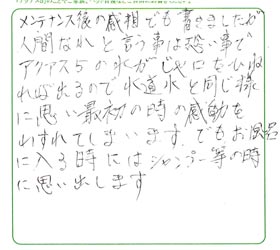 メンテナンス後の感想でも書きましたが
人間なれと言う事は恐い事で
アクアス5の水がじゃ口をひね
れば出るので水道水と同じ様
に思い最初の時の感動を
わすれてしまいます。でもお風呂
に入る時にはシャンプー等の時
に思い出します